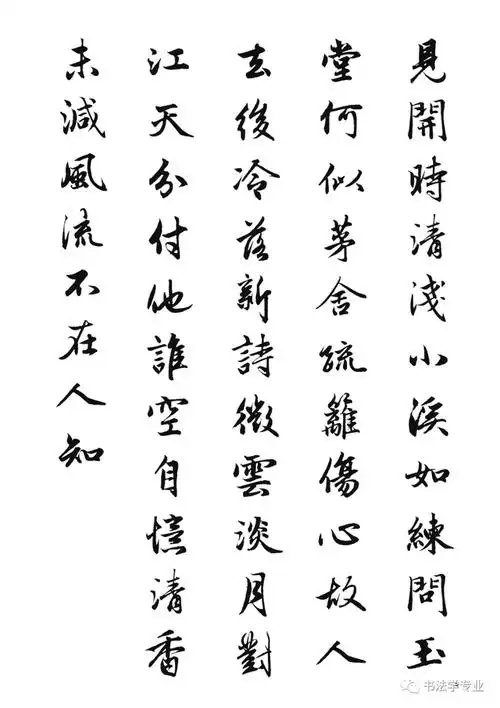 見開時清淺小溪如練問玉
堂何似茅舍疏籬傷心故人
去後冷落新詩微雲淡月對
江天分付他誰空自憶清香
未減風流不在人知
书法学专业